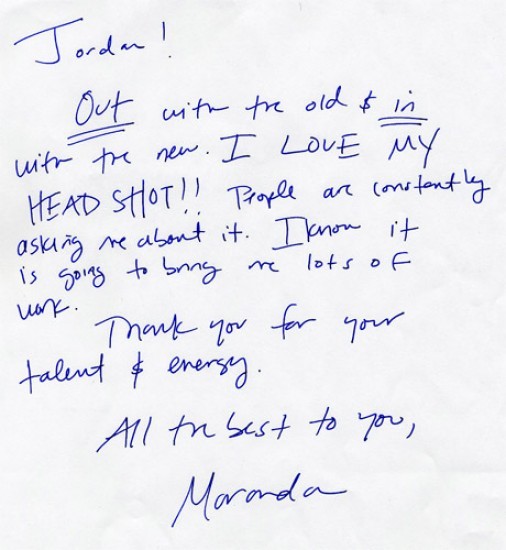 Jordan!
Out with the old & in
with the new. I LOVE MY
HEADSHOT!! People are constantly
asking me about it. I know it
is going to bring me lots of
work.
Thank you for your
talent & energy.
All the best to you,
Maranda